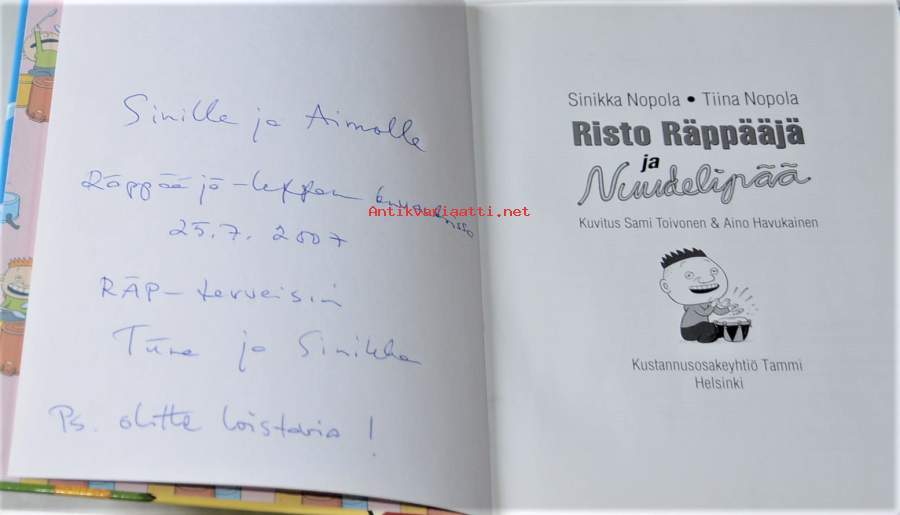 Sinille ja Aimolle
Räppääjä-leffan kuvauksissa
25.7.2007
RÄP-terveisin
Tiina ja Sinikka
Ps. olitte loistavia!
Antikvariaatti.net
Sinikka Nopola • Tiina Nopola
Risto Räppääjä
ja
Nuudelipää
Kuvitus Sami Toivonen & Aino Havukainen
Kustannusosakeyhtiö Tammi
Helsinki